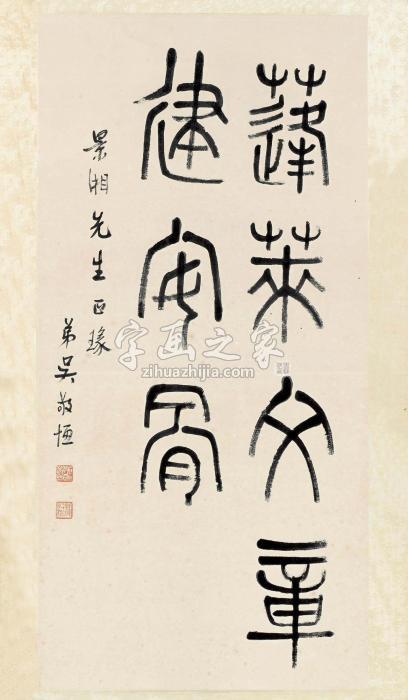 蓬萊文章
建安骨
景湘先生正瑑
弟吴敬恆
字画之家
zihuazhijia.com